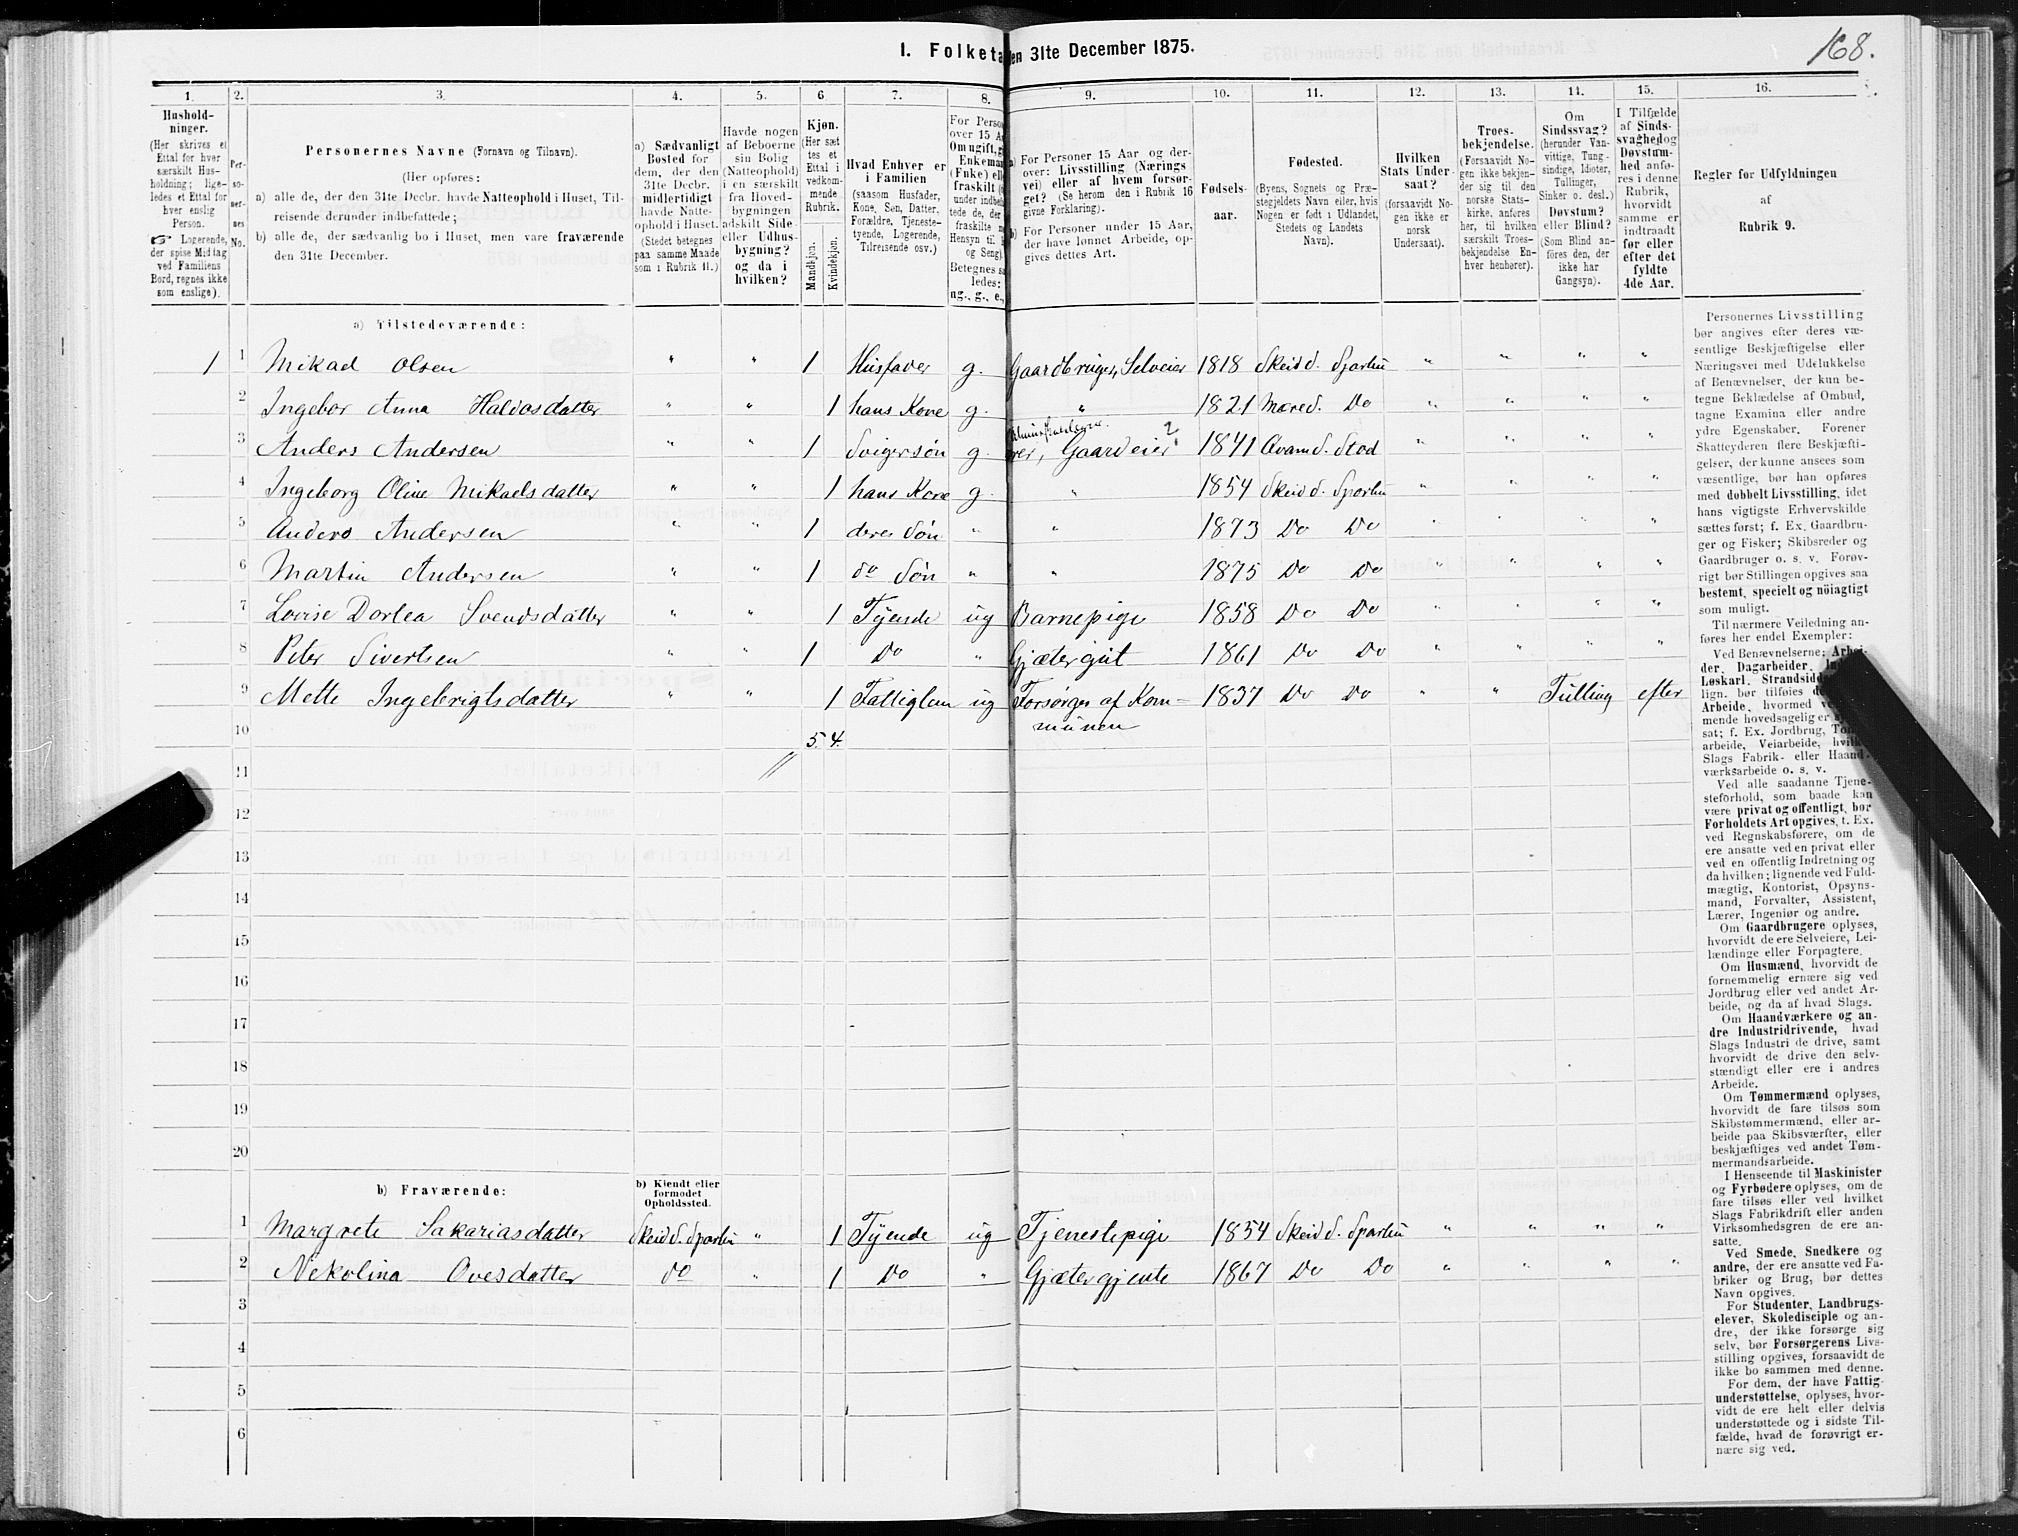 168.
I. Folketa en 31te December 1875.
1. 2. 3. 4. 5. 6. 7. 8. 9. 10. 11. 12. 13. 14. 15. 16.
Hushold-
ninger.
(Her skrives et
Ettal for hver
særskilt Hus-
holdning; lige-
ledes et Ettal for
hver enslig
Person.
☞ Logerende,
der spise Middag
ved Familiens
Bord, regnes ikke
som enslige).
Per-
so-
ner-
nes
No.
Personernes Navne (Fornavn og Tilnavn).
(Her opføres:
a) alle de, der den 31te Decbr. havde Natteophold i Huset, Til-
reisende derunder indbefattede;
b) alle de, der sædvanlig bo i Huset, men vare fraværende
den 31te December.
a) Sædvanligt
Bosted for
dem, der den
31te Decbr.
midlertidigt
havde Natte-
ophold i Huset.
(Stedet betegnes
paa samme Maade
som i Rubrik 11.)
Havde nogen
af Beboerne
sin Bolig
(Natteophold)
i en særskilt
fra Hoved-
bygningen
adskilt Side-
eller Udhus-
bygning?
og da i
hvilken?
Kjøn.
(Her sæt-
tes et
Ettal i
vedkom-
mende
Rubrik.
Mandkjøn.
Kvindekjøn.
Hvad Enhver er
i Familien
(saasom Husfader,
Kone, Søn, Datter,
Forældre, Tjeneste-
tyende, Logerende,
Tilreisende osv.)
For Perso
over 15 A
Om ugift, g
Enkema
(Fnke) ell
fraskilt
under indbe
tede de, der
fraskilte
Hensyn til
og Seng).
Betegnes s
ledes:
ug., g., e.,
a) For Personer 15 Aar og der-
over: Livsstilling (Nærings
vei) eller af hvem forsør-
get? (Se herom den i Rubrik 16
givne Forklaring).
b) For Personer under 15 Aar,
der have lønnet Arbeide, op-
gives dettes Art.
Fødsels-
aar.
Fødested.
(Byens, Sognets og Præ-
stegjeldets Navn eller, hvis
Nogen er født i Udlandet,
Stedets og Landets
Navn).
Hvilken
Stats Under-
saat?
(forsaavidt No-
gen ikke er
norsk
Undersaat).
Troes-
bekjendelse.
(Forsaavidt No-
gen ikke bekjen-
der sig til den
norske Stats-
kirke, anføres
her, til hvilken
særskilt Troes-
bekjendelse En-
hver henhører).
Om
Sindssvag?
(herunder Van-
vittige, Tung-
sindige, Idioter,
Tullinger,
Sinker o. desl.)
Døvstum?
eller Blind?
(Som Blind an-
føres den, der
ikke har
Gangsyn).
I Tilfælde
af Sinds-
svaghed og
Døvstum-
hed anfø-
res i denne
Rubrik,
hvorvidt
samme er
indtraadt
før eller
efter det
fyldte
4de Aar.
Regler for Udfyldningen
af
Rubrik 9.
a) Tilstedeværende:
1 1 Mikael Olsen " " 1 Husfader g. Gaardbruger, Selveier 1818 Skeid S. Sparbu " " " "
2 Ingebor Anna Haldosdatter " " 1 hans Kone g. " 1821 Mære S. Do " " " "
3 Anders Andersen " " 1 Svigersøn g. Gaardeier ? 1841 Qvam S. Stod " " " "
4 Ingeborg Oline Mikaelsdatter " " 1 hans Kone g. " 1854 Skeid S. Sparbu " " " "
5 Anders Andersen " " 1 deres Søn " " 1873 Do Do " " " "
6 Martin Andersen " " 1 do Søn " " 1875 Do Do " " " "
7 Lovise Dortea Svendsdatter " " 1 Tyende ug Barnepige 1858 Do Do " " " "
8 Peter Sivertsen " " 1 Do " Gjætergut 1861 Do Do " " " "
9 Mette Ingebrigtsdatter " " 1 Fattiglem ug Forsørges af Kom- 1837 Do Do " " Tulling efter
munen
10 5. 4.
11
12
13
14
15
16
17
18
19
20
b) Fraværende:
b) Kiendt eller
formodet
Opholdssted.
1 Margrete Sakariasdatter Skeid S. Sparbu " 1 Tyende ug Tjenestepige 1854 Skeid S. Sparbu " " " "
2 Nekolina Ovesdatter do " 1 Do " Gjætergjente 1867 Do Do " " " "
3
4
5
6
Personernes Livsstilling
bør angives efter deres væ-
sentlige Beskjæftigelse eller
Næringsvei med Udelukkelse
af Benævnelser, der kun be-
tegne Beklædelse af Ombud,
tagne Examina eller andre
ydre Egenskaber. Forener
Skatteyderen flere Beskjæfti-
gelser, der kunne ansees som
væsentlige, bør han opføres
med dobbelt Livsstilling, idet
hans vigtigste Erhvervskilde
sættes først; f. Ex. Gaardbru-
ger og Fisker; Skibsreder og
Gaardbruger o. s. v. Forøv-
rigt bør Stillingen opgives saa
bestemt, specielt og nøiagtigt
som muligt.
Til nærmere Veiledning an-
føres her endel Exempler:
Ved Benævnelserne: Arbei-
der, Dagarbeider, In
Løskarl, Strandsidd
lign. bør tilføies d
Arbeide, hvormed v
mende hovedsagelig er
sat; f. Ex. Jordbrug, To
arbeide, Veiarbeide, hvil
Slags Fabrik- eller Haand-
værksarbeide o. s. v.
Ved alle saadanne Tjene-
steforhold, som baade kan
være privat og offentligt, bør
Forholdets Art opgives, t. Ex.
ved Regnskabsførere, om de
ere ansatte ved en privat eller
ved en offentlig Indretning og
da hvilken; lignende ved Fuld-
mægtig, Kontorist, Opsyns-
mand, Forvalter, Assistent,
Lærer, Ingeniør og andre.
Om Gaardbrugere oplyses,
hvorvidt de ere Selveiere, Lei-
lændinge eller Forpagtere.
Om Husmænd, hvorvidt de
fornemmelig ernære sig ved
Jordbrug eller ved andet Ar-
beide, og da af hvad Slags.
Om Haandværkere og an-
dre Industridrivende, hvad
Slags Industri de drive, samt
hvorvidt de drive den selv-
stændigt eller ere i andres
Arbeide.
Om Tømmermænd oplyses,
hvorvidt de fare tilsøs som
Skibstømmermænd, eller ar-
beide paa Skibsværfter, eller
beskjæftiges ved andet Tøm-
mermandsarbeide.
I Henseende til Maskinister
og Fyrbødere oplyses, om de
fare tilsøs eller ved hvilket
Slags Fabrikdrift eller anden
Virksomhedsgren de ere an-
satte.
Ved Smede, Snedkere og
andre, der ere ansatte ved Fa-
briker og Brug, bør dettes
Navn opgives.
For Studenter, Landbrugs-
elever, Skoledisciple og an-
dre, der ikke forsørge sig
selv, bør Forsørgerens Livs-
stilling opgives, forsaavidt de
ikke bo sammen med denne.
For dem, der have Fattig-
understøttelse, oplyses, hvor-
vidt de ere helt eller delvis
understøttede og i sidste Til-
fælde, hvad de forøvrigt er-
nære sig ved.